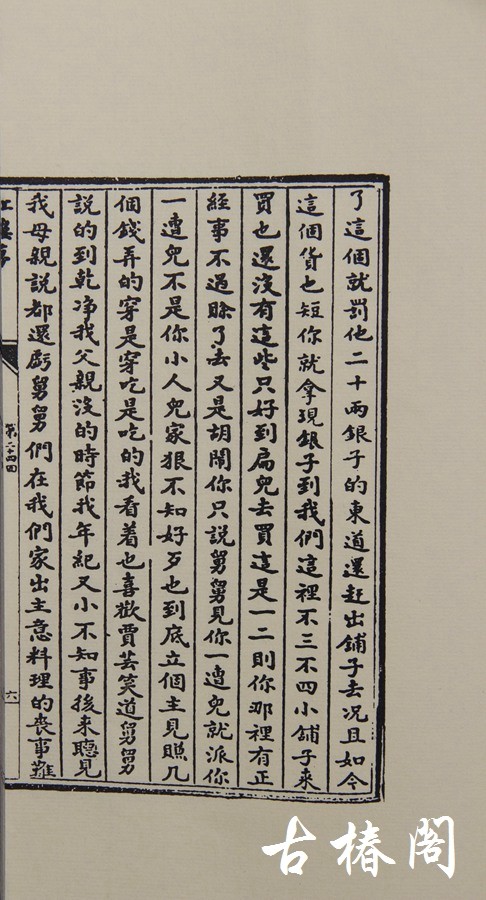 了這個就罰他二十兩銀子的東道還赶出鋪子去况且如今
這個貨也短你就拿現銀子到我們這裡不三不四小鋪子来
買也還没有這些只好到扁兒去買這是一二則你那裡有正
經事不過賒了去又是胡鬧你只說舅舅見你一遭兒就派你
一遭兒不是你小人兒家狠不知好歹也到底立個主見賺几
個錢弄的穿是穿吃是吃的我看着也喜歡賈芸笑道舅舅
說的到乾净我父親没的時節我年紀又小不知事後来聽見
我母親說都還虧舅舅們在我們家出主意料理的喪事難
紅樓夢
第二十四回
六
古椿閣